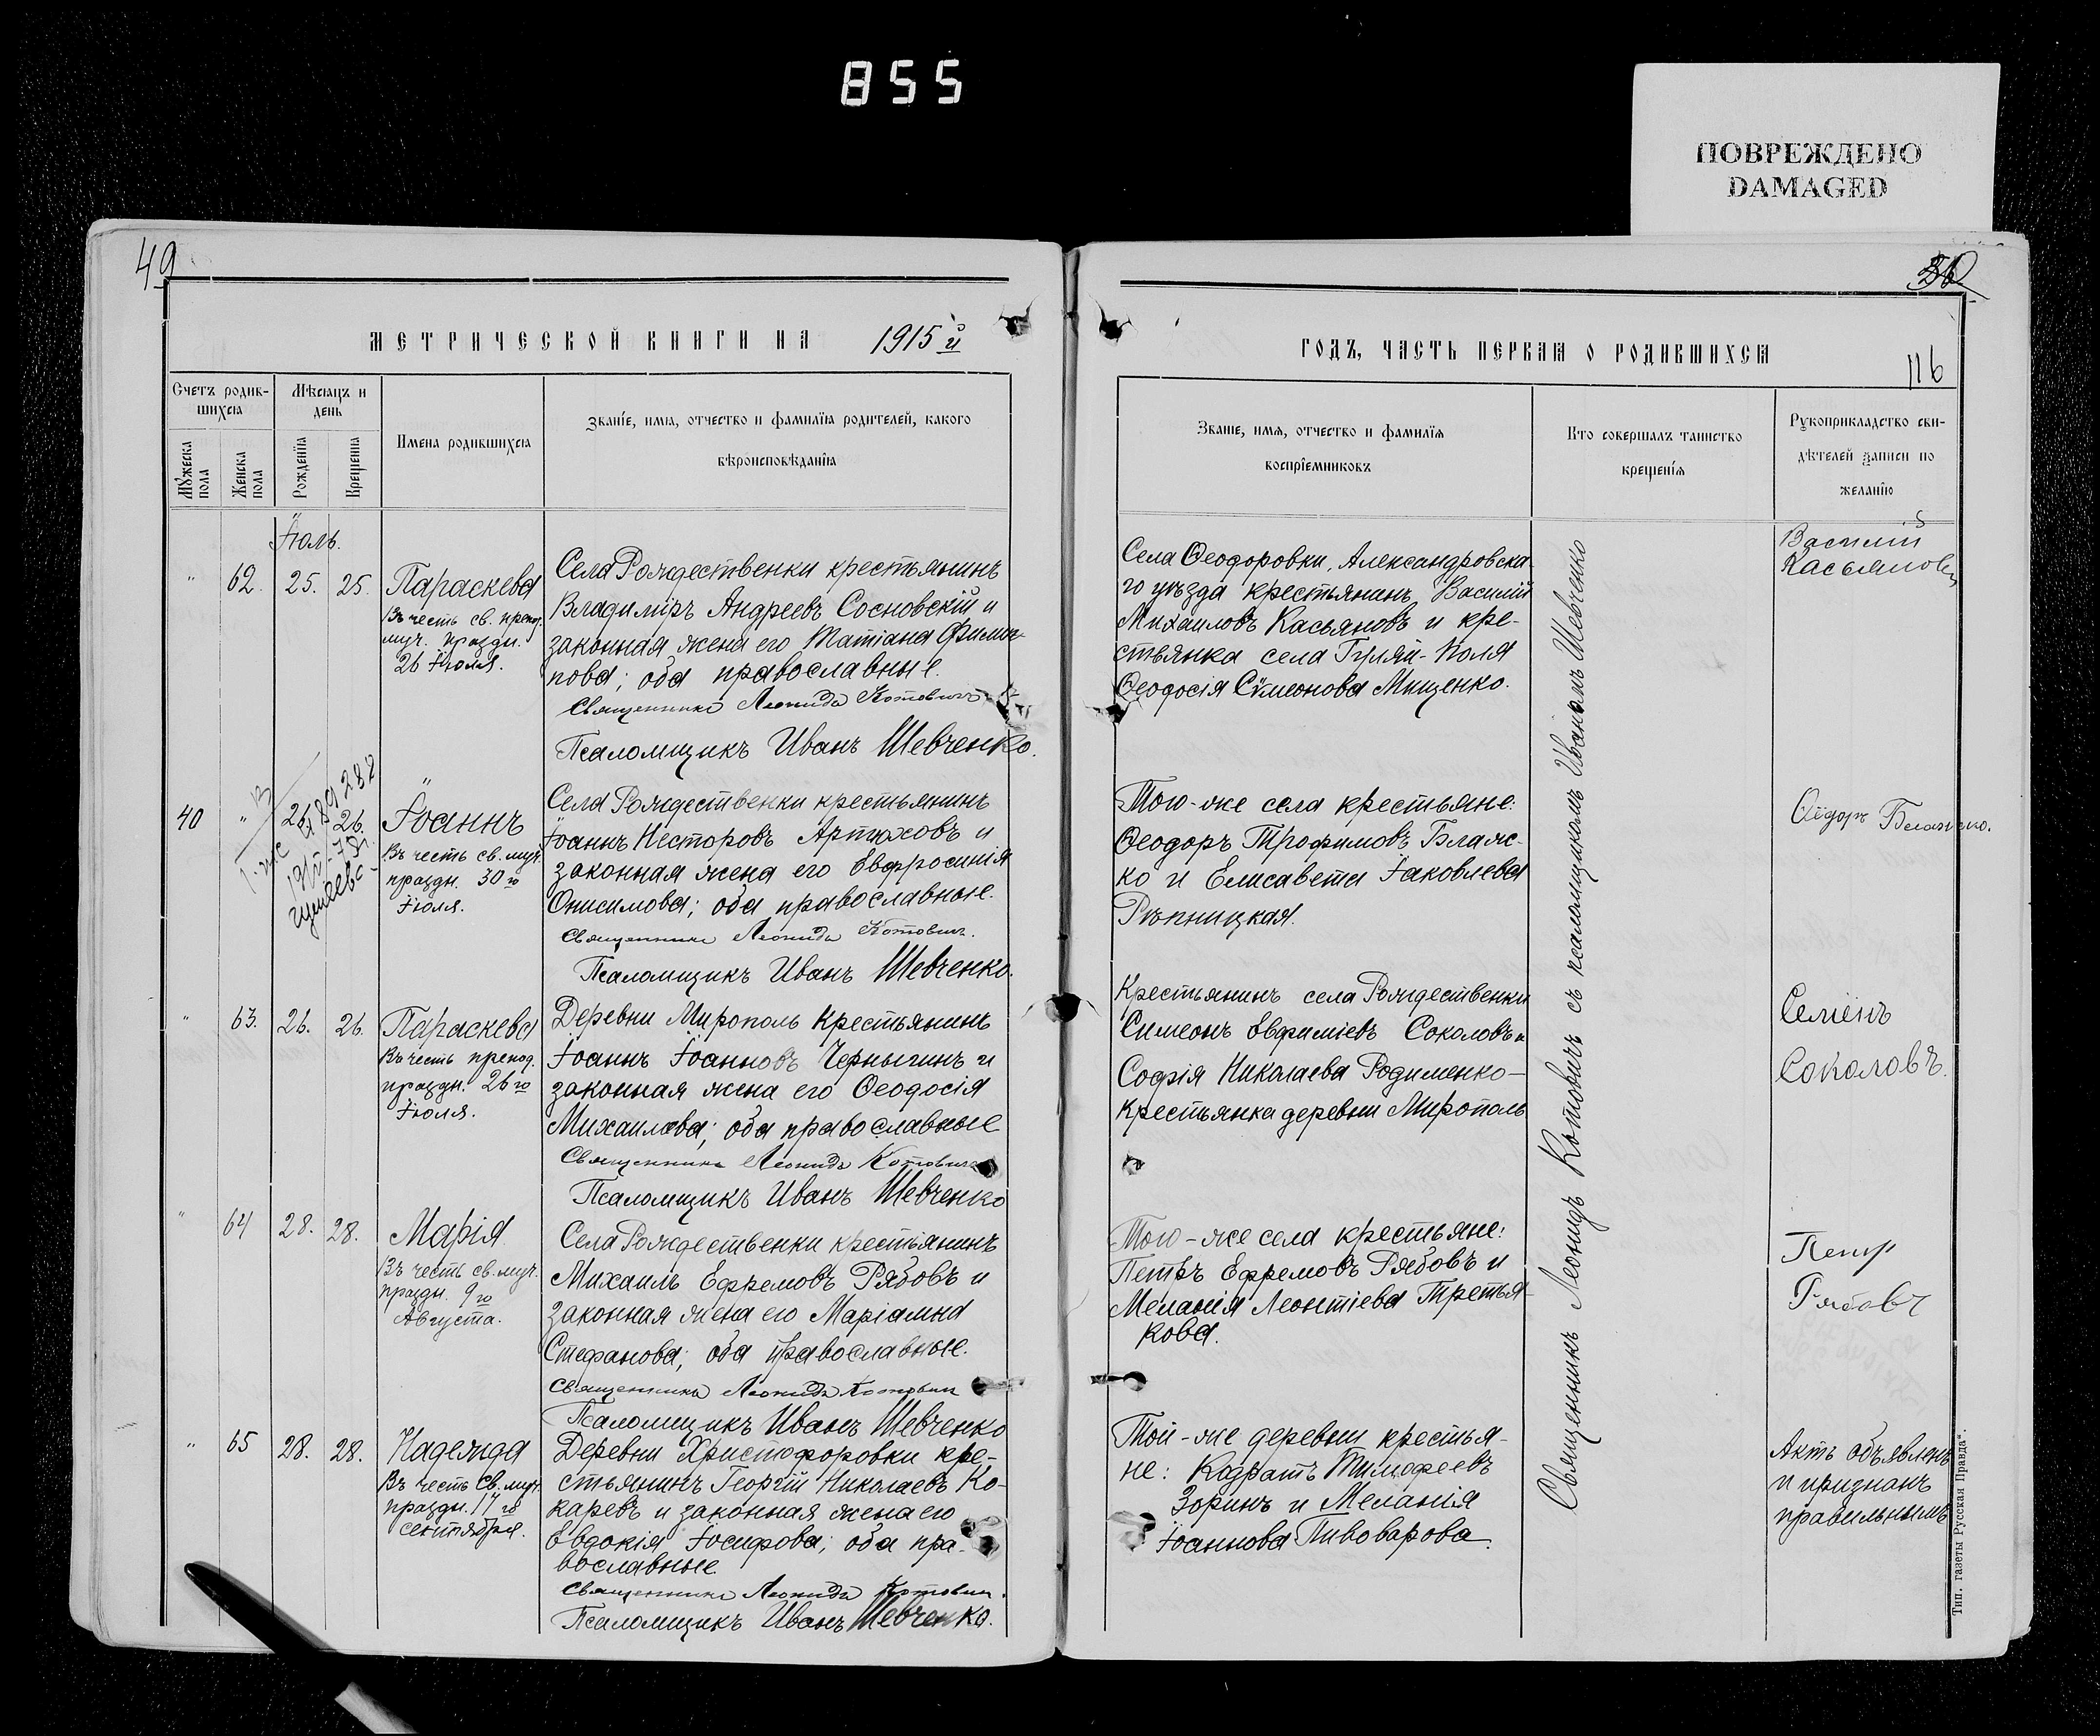 855
ПОВРЕЖДЕНО
DAMAGED
49
МЕТРИЧЕСКОЙ КНИГИ НА 1915 й
Счетъ родив-
шихся
Мѣсяцъ и
день
Мужеска
пола
Женска
пола
Рожденїя
Крещенїя
Имена родившихся
Званїе, имя, отчество и фамилїя родителей, какого
вѣроисповѣданїя
Іюль.
" 62. 25. 25.
Параскева
Въ честь св. препод.
муч. праздн.
26 Іюля.
Села Рождественки крестьянинъ
Владиміръ Андреевъ Сосновскій и
законная жена его Татіана Филип-
пова; оба православные.
Священникъ Леонидъ Котовичъ
Псаломщикъ Иванъ Шевченко.
40 " 26. 26.
Іоаннъ
Въ честь св. муч.
праздн. 30 го
Іюля.
Села Рождественки крестьянинъ
Іоаннъ Несторовъ Артюховъ и
законная жена его Евфросинія
Онисимова; оба православные.
Священникъ Леонидъ Котовичъ.
Псаломщикъ Иванъ Шевченко.
" 63. 26. 26.
Параскева
Въ честь препод.
праздн. 26 го
Іюля.
Деревни Мирополь крестьянинъ
Іоаннъ Іоанновъ Чернышнъ и
законная жена его Ѳеодосія
Михаилова; оба православные
Священникъ Леонидъ Котовичъ
Псаломщикъ Иванъ Шевченко
" 64 28. 28.
Марія
Въ честь св. муч.
праздн. 9 го
Августа.
Села Рождественки крестьянинъ
Михаилъ Ефремовъ Рябовъ и
законная жена его Маріамна
Стефанова; оба православные.
Священникъ Леонидъ Котовичъ
Псаломщикъ Иванъ Шевченко
" 65 28. 28.
Надежда
Въ честь св. муч.
праздн. 17 го
сентября.
Деревни Христофоровки кре-
стьянинъ Георгій Николаевъ Ко-
каревъ и законная жена его
Евдокія Іосифова; оба пра-
вославные
Священникъ Леонидъ Котовичъ.
Псаломщикъ Иванъ Шевченко.
ГОДЪ, ЧАСТЬ ПЕРВАЯ О РОДИВШИХСЯ
116
Званїе, имя, отчество и фамилїя
воспрїемниковъ
Кто совершалъ таинство
крещенїя
Рукоприкладство сви-
дѣтелей записи по
желанїю
Села Ѳеодоровки, Александровска-
го уѣзда крестьянинъ Василій
Михаиловъ Касьяновъ и кре-
стьянка села Гуляй-Поля
Ѳеодосія Сѵмеонова Мищенко.
Василий
Касьяновъ
Того-же села крестьяне:
Ѳеодоръ Трофимовъ Блаж-
ко и Елисавета Іаковлева
Рѣпницкая.
Ѳедоръ Блажко.
Крестьянинъ села Рождественки
Симеонъ Евфиміевъ Соколовъ и
Софія Николаева Родименко-
крестьянка деревни Мирополь
Семенъ
Соколовъ.
Того-же села крестьяне:
Петръ Ефремовъ Рябовъ и
Меланія Леонтіева Третья-
кова.
Петр
Рябовъ
Той-же деревни крестья-
не: Кодратъ Тимофеевъ
Зоринъ и Меланія
Іоаннова Пивоварова.
Актъ объявленъ
и признанъ
правильнымъ
Священникъ Леонидъ Котовичъ съ псаломщикомъ Иваномъ Шевченко
Тип. газеты Русская Правда“.